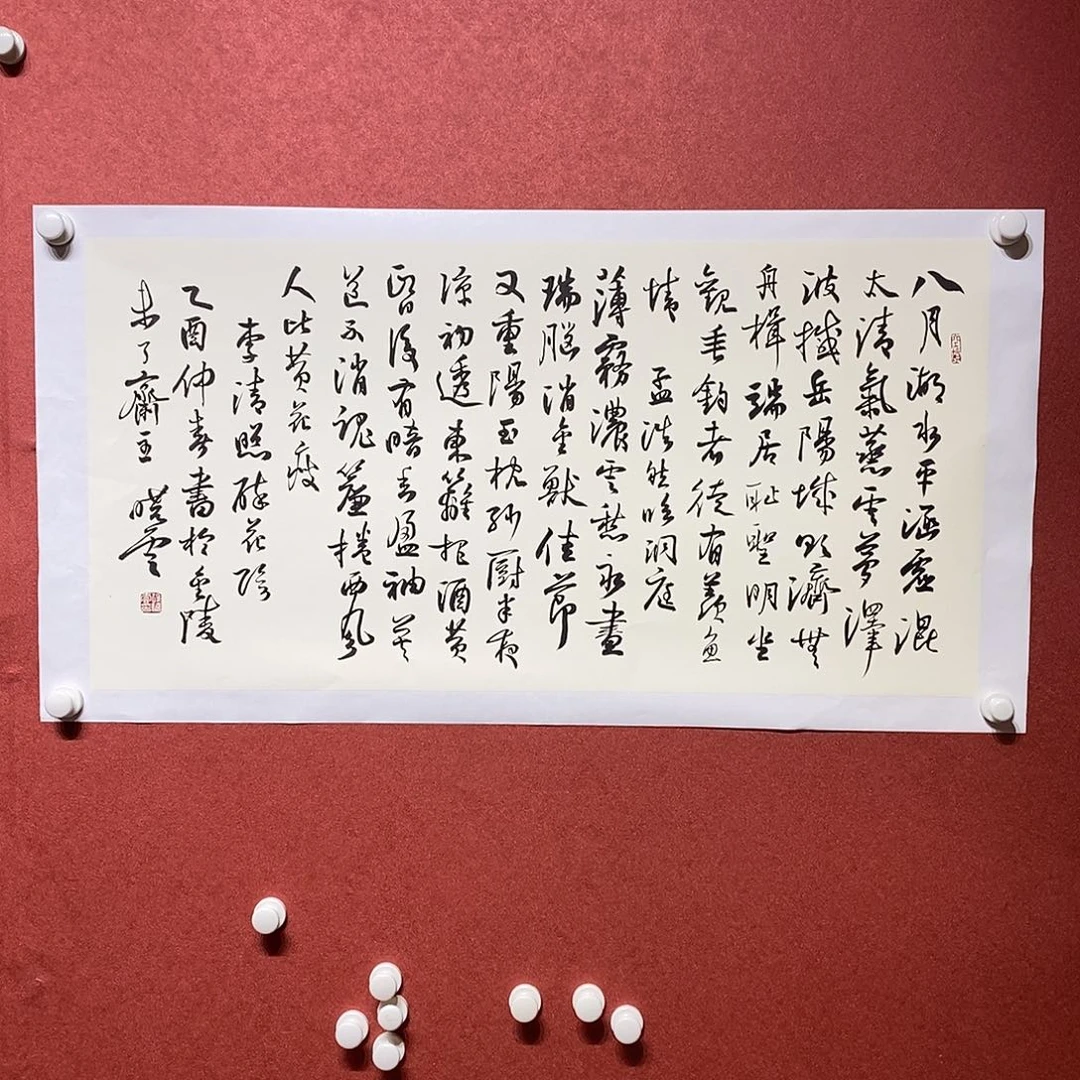 八月湖水平涵虛混
太清氣蒸雲夢澤
波撼岳陽城欲濟無
舟楫端居恥聖明坐
觀垂釣者徒有羨魚
情 孟浩然臨洞庭
薄霧濃雲愁永晝
瑞腦消金獸佳節
又重陽玉枕紗厨半夜
涼初透東籬把酒黄
昏後有暗香盈袖莫
道不消魂簾捲西風
人比黄花瘦
李清照醉花陰
乙酉仲春書於金陵
未了齋主 曉雲